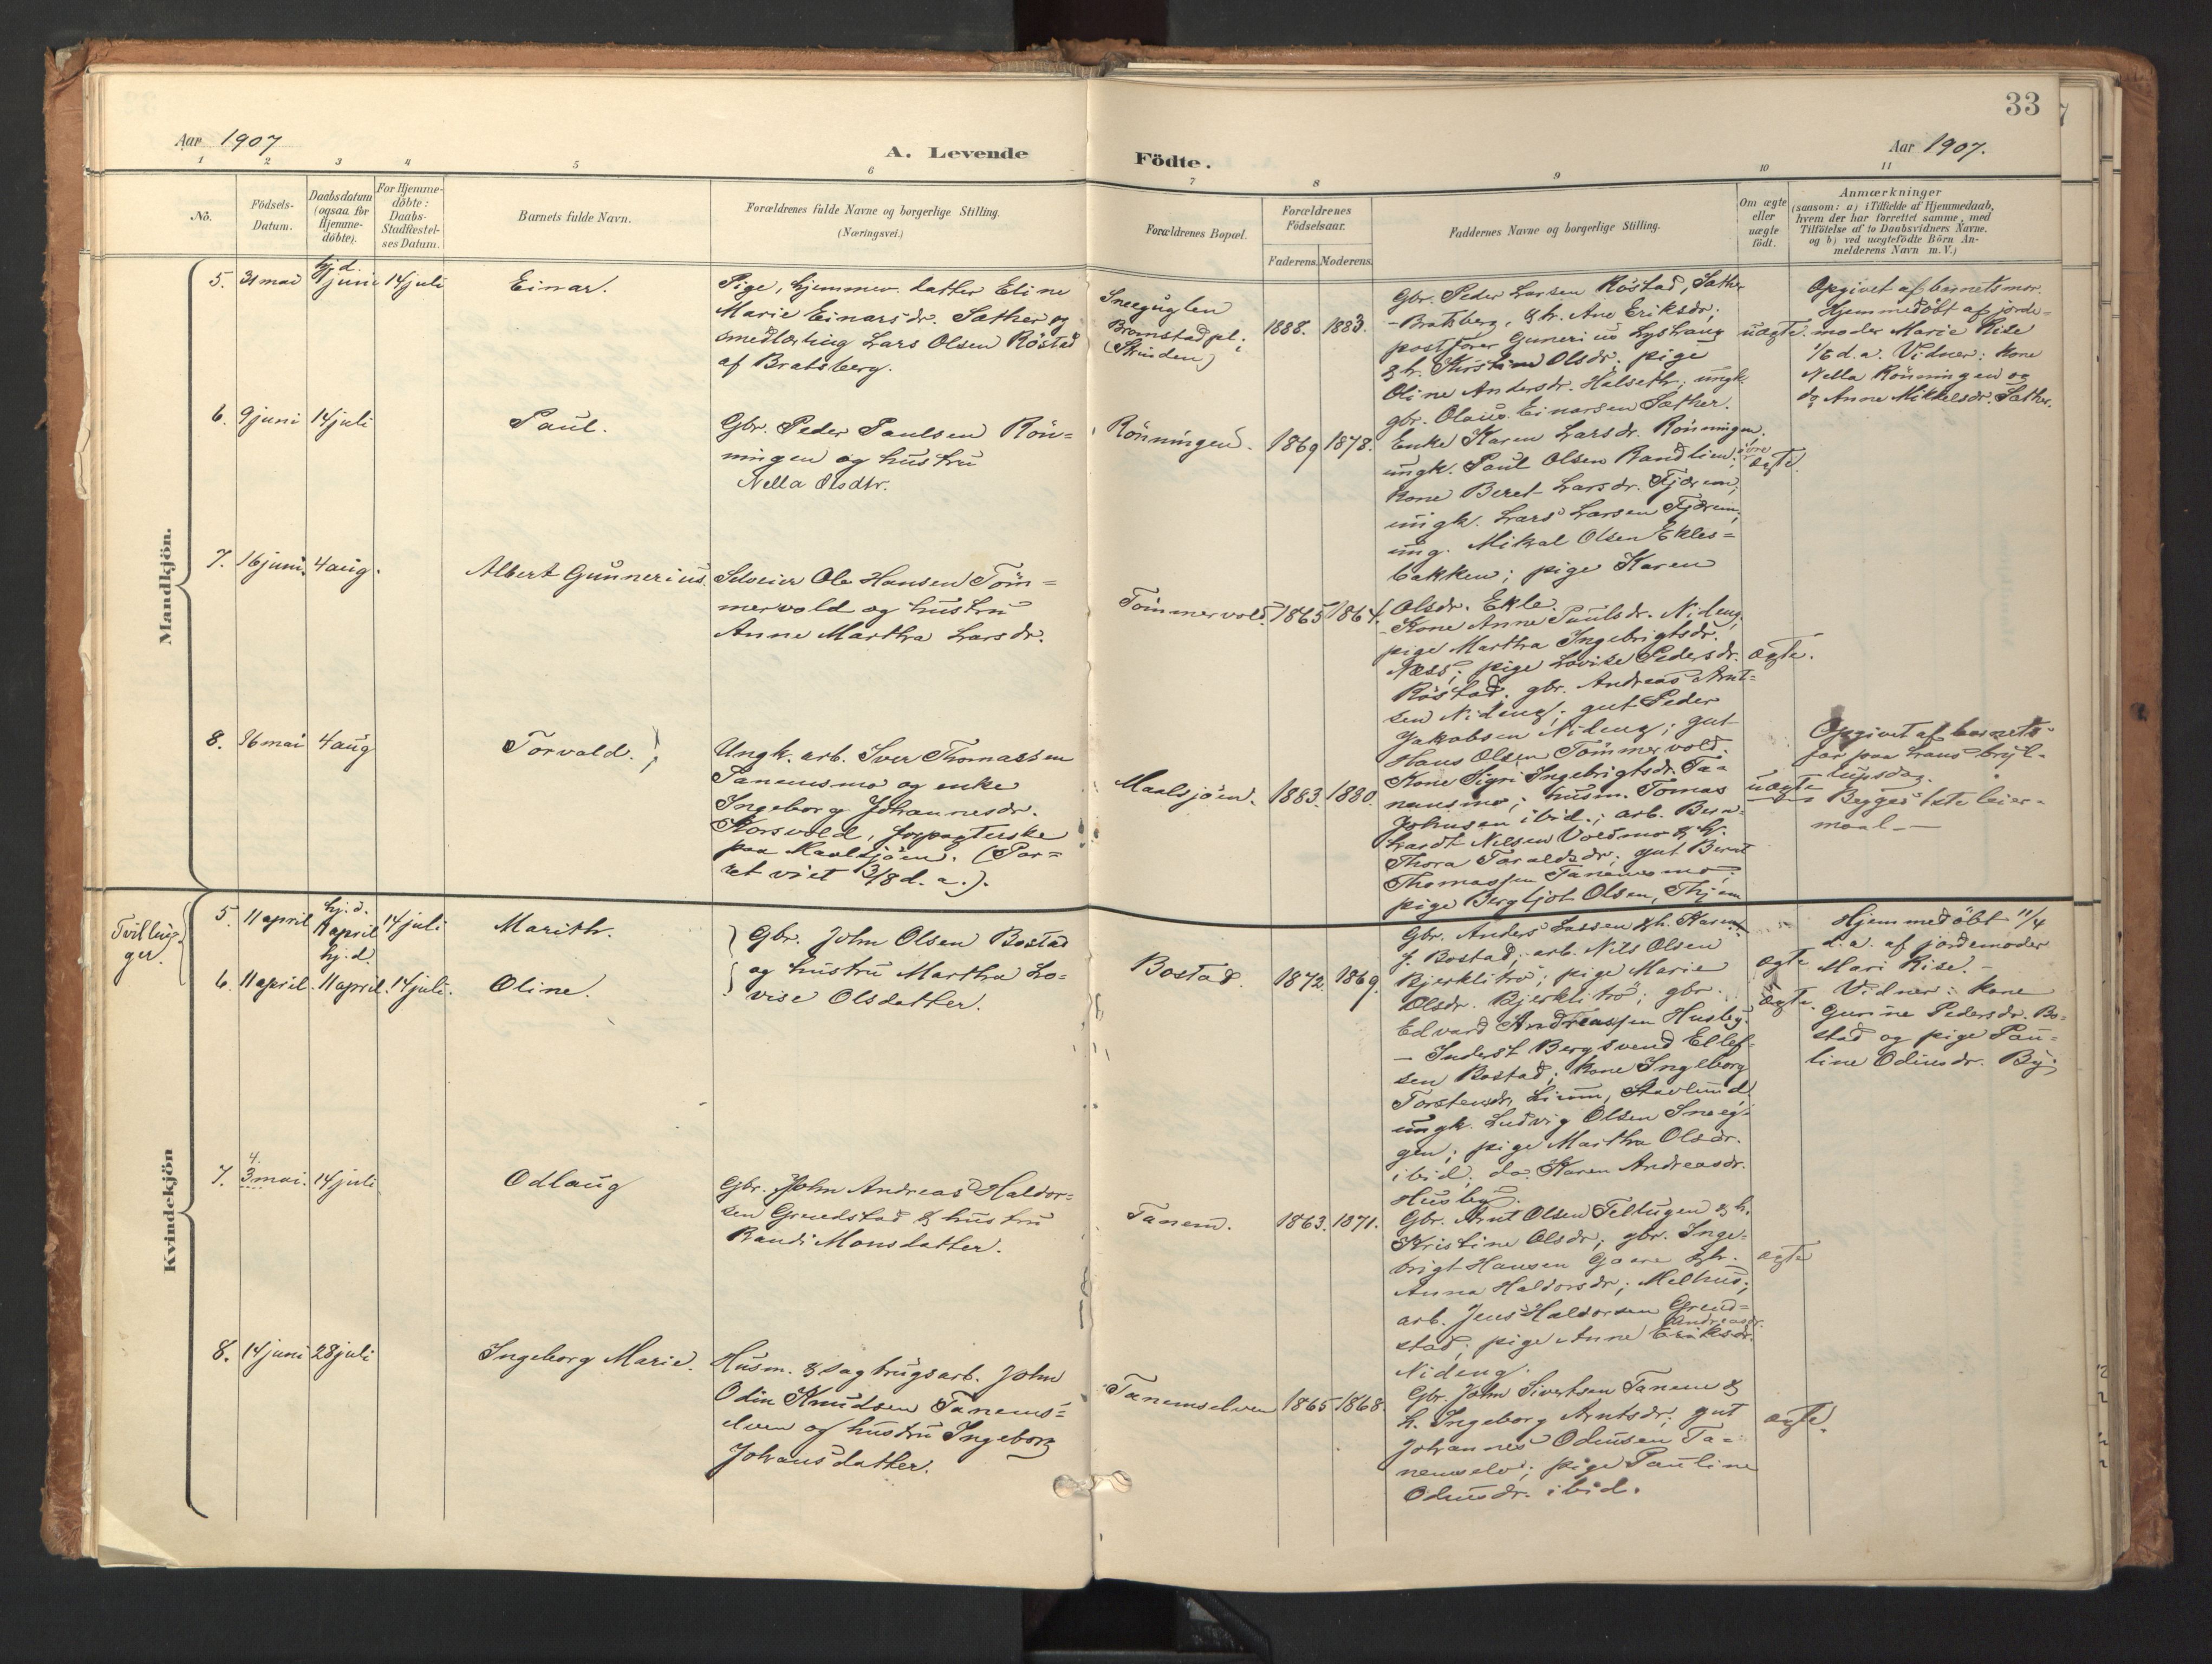 33
Aar 1907
A. Levende
Födte.
Aar 1907.
1 2 3 4 5 6 7 8 9 10 11
No.
Födsels-
Datum.
Daabsdatum
(ogsaa for
Hjemme-
döbte).
For Hjemme-
döbte:
Daabs-
Stadfæstel-
ses Datum.
Barnets fulde Navn.
Forældrenes fulde Navne og borgerlige Stilling.
(Næringsvei.)
Forældrenes Bopæl.
Forældrenes
Födselsaar.
Faderens. Moderens.
Faddernes Navne og borgerlige Stilling.
Om ægte
eller
uægte
födt.
Anmærkninger
(saasom: a) i Tilfælde af Hjemmedaab,
hvem der har forrettet samme, med
Tilföielse af to Daabsvidners Navne.
og b) ved uægtefödte Börn An-
melderens Navn m. V.)
Mandkjön.
5. 31 mai
hj. d.
juni 14 juli
Einar.
Pige, hjemmev. datter Eline
Marie Einarsdr. Sæther og
smedlærling Lars Olsen Röstad
af Bratsberg.
Sneeguglen
Bromstad pl.
(Strinden)
1888. 1883.
Gbr. Peder Larsen Röstad, Sæther
- Bratsberg, & h. Ane Eriksdr;
postförer Gunerius Lyshaug
& h. Kirstine Olsdr; pige
Oline Andersdr. Halseth; ungk.
gbr. Olaus Einarsen Sæther.
uægte.
Opgivet af barnets mor.
Hjemmedöbt af jorde-
moder Marie Rise
d. a. Vidner: Kone
Nella Rönningen og
do Anne Mikkelsdr. Sæther.
6. 9 juni 14 juli
Paul.
Gbr. Peder Paulsen Rön-
ningen og hustru
Nella Olsdtr.
Rönningen. 1869 1878.
Enke Karen Larsdr. Rönningen,
ungk. Paul Olsen Randlien;
Kone Beret Larsdr. Fjærem;
ungk. Lars Larsen Fjærem;
ung. Mikal Olsen Ekles-
bakken; pige Karen
Olsdr. Ekle.
ægte.
7. 16 juni. 4 aug.
Albert Gunnerius.
Selveier Ole Hansen Töm-
mervold og hustru
Anne Martha Larsdr.
Tömmervold. 1865 1864.
Kone Anne Paulsdr. Nideng;
pige Martha Ingebrigtsdr.
Næss; pige Lovise Pedersdr.
Röstad; gbr. Andreas Arnt-
sen Nideng; gut Peder
Jakobsen Nideng; gut
Hans Olsen Tömmervold.
ægte.
8. 26 mai 4 aug
Torvald.
Ungk. arb. Iver Thomassen
Tanemsmo og enke
Ingeborg Johannesdr.
Korsvold, forpagterske
paa Maalsjöen. (Par-
ret viet 3/8 d. a.).
Maalsjöen. 1883. 1880.
Kone Sigri Ingebrigtsdr. Ta-
nemsmo; husm. Tomas
Johnsen ibid.; arb. Bern-
hardt Nilsen Voldmo & h.
Thora Taraldsdr; gut Bernt
Thomassen Tanemsmo;
pige Bergljot Olsen, Thjem
uægte
Opgivet af barnets
far paa hans bryl-
lupsdag.
Begges 1ste leier-
maal —
Kvindekjön
Tvillin-
ger.
5. 11 april
hj. d.
11 april 14 juli
Marith.
Gbr. John Olsen Bostad
og hustru Martha Lo-
vise Olsdatter.
Bostad. 1872. 1869.
6. 11 april.
hj. d.
11 april. 14 juli.
Oline.
Gbr. Anders Lassen & h. Karen
J. Bostad; arb. Nils Olsen
Bjerklitrö; pige Marie
Olsdr. Bjerklitrö; gbr.
Edvard Andreassen Husby.
— Inderst Bergsvend Ellef-
sen Bostad; Kone Ingeborg
Torstensdr. Stavlund
ungk. Ludvig Olsen Sneeg-
gen; pige Martha Olsdr.
ibid; do. Karen Andreasdr.
Husby.
ægte
ægte.
Hjemmedöbt 11/4
d. a. af jordemoder
Mari Rise. —
Vidner: Kone
Gurine Pedersdr. Bo-
stad og pige Pau-
line Odinsdr. By;
7.
4.
3 mai. 14 juli
Odlaug
Gbr. John Andreas Haldor-
sen Grendstad & hustru
Randi Monsdatter.
Tanem. 1863. 1871.
Gbr. Arnt Olsen Teltugen & h.
Kristine Olsdr; gbr. Inge-
brigt Hansen Gaare & h.
Anna Haldorsdr; Melhus;
arb. Jens Haldorsen Grend-
Andreasdr.
stad; pige Anne Eriksdr.
Nideng.
ægte
8. 14 juni 28 juli
Ingeborg Marie.
Husm. & sagbrugsarb. John
Odin Knudsen Tanems-
elven og hustru Ingeborg
Johansdatter.
Tanemselven 1865 1868.
Gbr. John Sivertsen Tanem &
h. Ingeborg Arntsdr; gut
Johannes Odinsen Ta-
nemselv; pige Pauline
Odinsdr. ibid.
ægte.